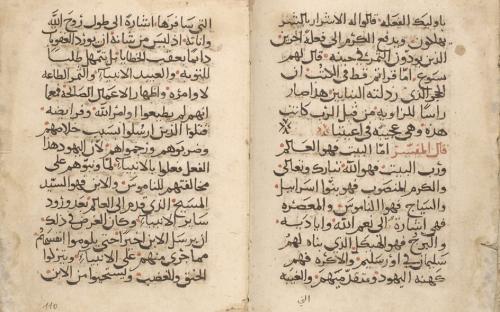 باوليك الفعله قالوا له الاشرار بالشر
يهلكون ويدفع الكرم الى فعلة اخرين
الذين يودون الثمر في حينه قال لهم
يسوع اما قراتم قط في الكتب ان
الحجر الذي رذلته البنايين هذا صار
راسا للزاويه من قبل الرب كانت
هذه وهي عجيبه في اعيننا
قال المفسر اما البيت فهو العالم
ورب البيت فهو الله تبارك وتعالى
والكرم المنصوب فهو بنوا اسراييل
والسياج فهو الناموس والمعصره
فهي اشارة الى نعم الله واياديه
والبرج فهو الهيكل الذي بناه لهم
سليمان في اورشليم والاكره فهم
كهنة اليهود ومتقدميهم والغيبه
التي
التي سافرها اشارة الى طول روح الله
واناته اذ ليس من شانه ان يورد العقوبه
دايما بعقب الخطايا بل يتمهل طلبا
للتوبه والعبيد الانبيا والثمر الطاعه
لاوامره واظهار الاعمال الصالحه
انهم لم يطيعوا اوامر الله وفرايضه
قتلوا الذين ارسلوا بسبب خلاصهم
وضربوهم ورجموهم لان اليهود هذا
الفعل فعلوا بالانبيا لما وبخوهم على
مخالفتهم للناموس والابن فهو السيد
المسيح الذي قدم الى العالم بعد ورود
ساير الانبيا وكان الغرض في ذلك
ان يرسل الابن اخيرا حتى يلوموا انفسهم
مما جرى منهم على الانبيا ويتركوا
الحنق والغضب ويستحيوا من الابن
110